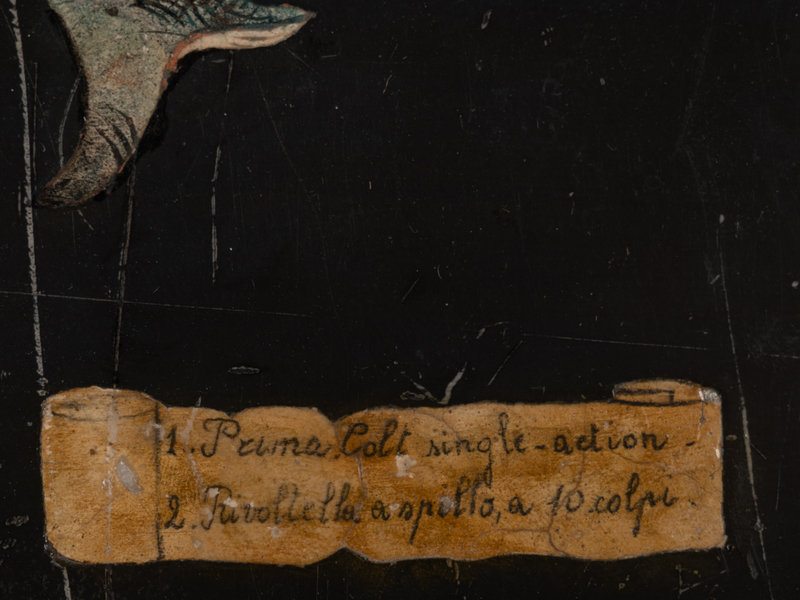 1. Prima Colt single-action -
2. Rivoltella a spillo, a 10 colpi.